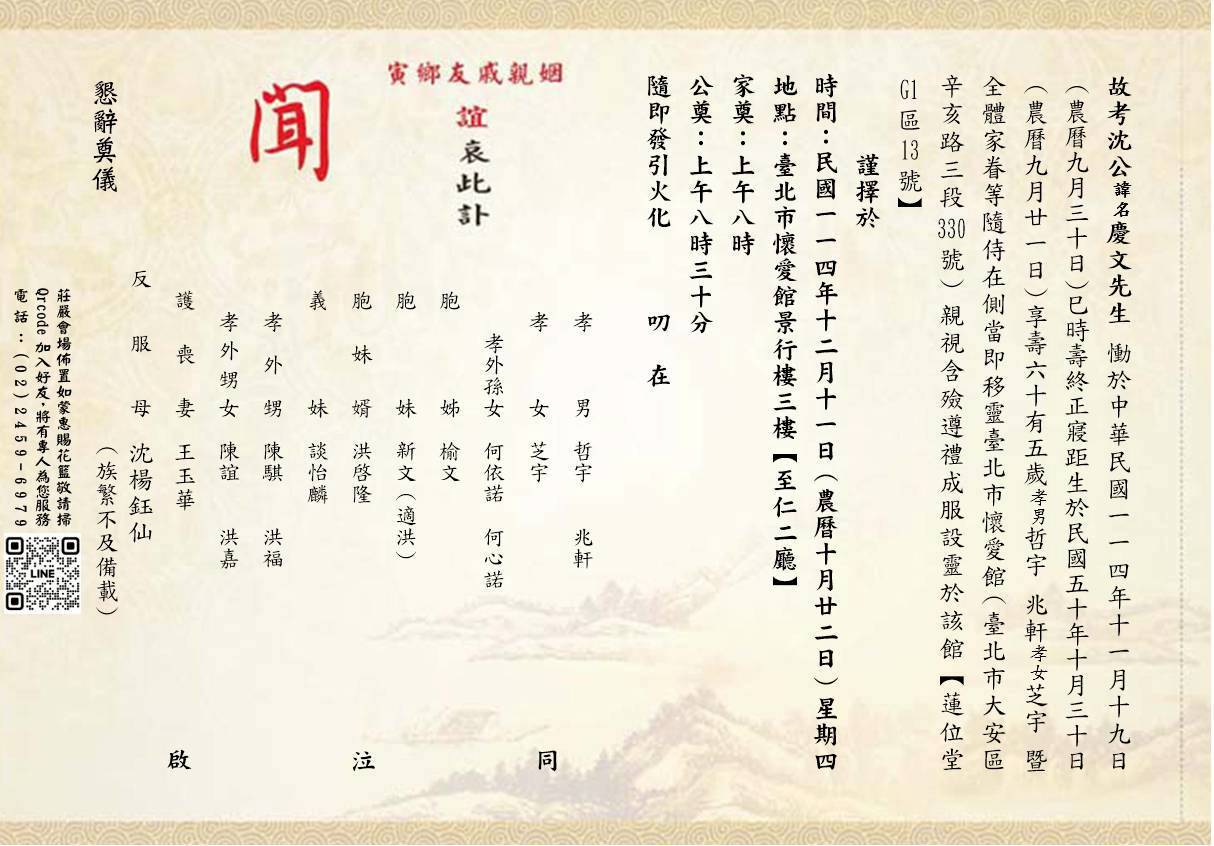 故考沈公諱名慶文先生 慟於中華民國一一四年十一月十九日
（農曆九月三十日）巳時壽終正寢距生於民國五十年十月三十日
（農曆九月廿一日）享壽六十有五歲孝男哲宇 兆軒孝女芝宇 暨
全體家眷等隨侍在側當即移靈臺北市懷愛館（臺北市大安區
辛亥路三段330號）親視含殮遵禮成服設靈於該館【蓮位堂
G1區13號】
謹擇於
時間：民國一一四年十二月十一日（農曆十月廿二日）星期四
地點：臺北市懷愛館景行樓三樓【至仁二廳】
家奠：上午八時
公奠：上午八時三十分
隨即發引火化 叨在
寅鄉友戚親姻
誼
哀此訃
聞
孝男 哲宇 兆軒
孝女 芝宇
孝外孫女 何依諾 何心諾
胞姊 榆文
胞妹 新文（適洪）
胞妹婿 洪啓隆
義妹 談怡麟
孝外甥 陳騏 洪福
孝外甥女 陳誼 洪嘉
護喪妻 王玉華
反服母 沈楊鈺仙
（族繁不及備載）
同泣啟
懇辭奠儀
莊嚴會場佈置如蒙惠賜花籃敬請掃
Qrcode加入好友，將有專人為您服務
電話：(02)2459-6979
LINE